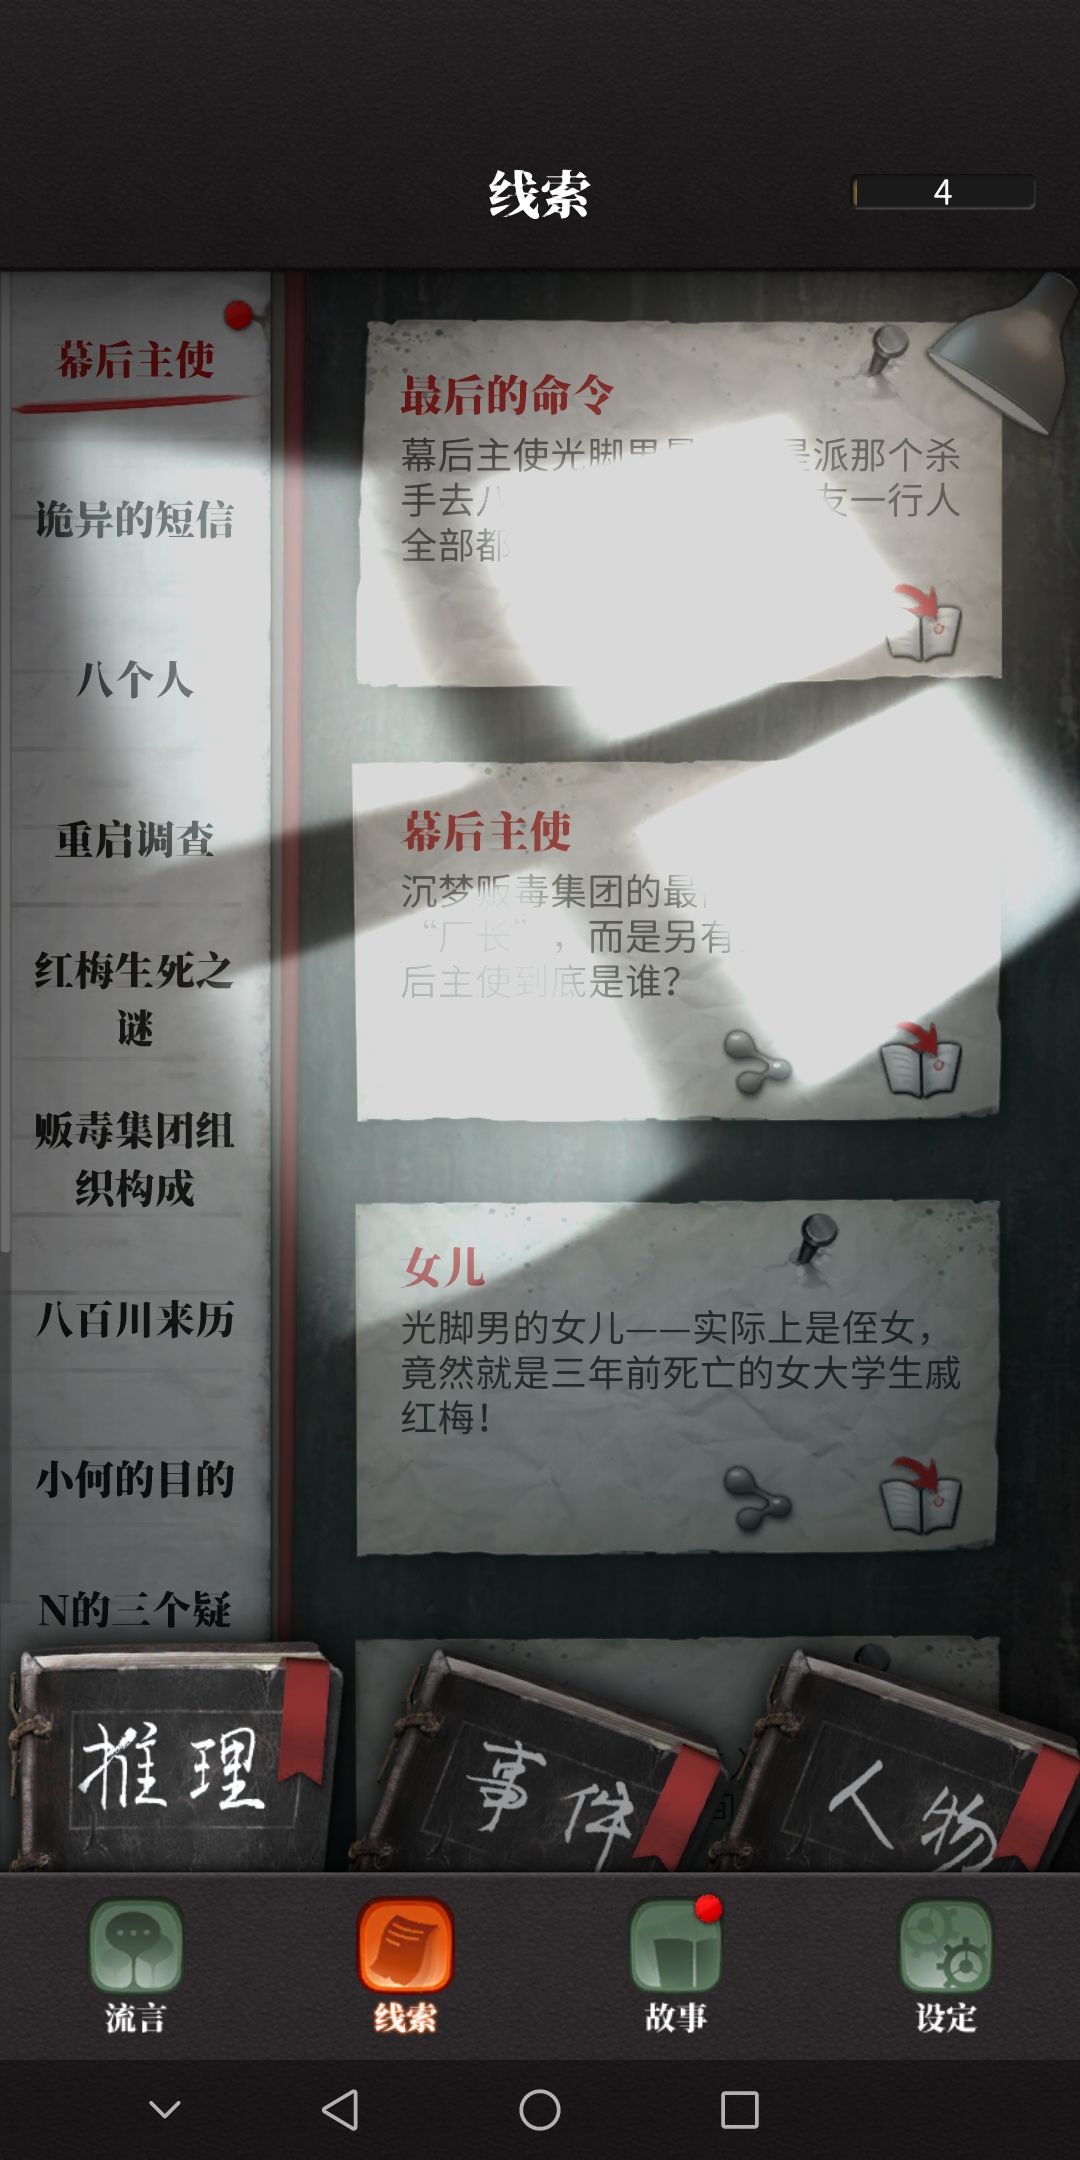 线索
4
幕后主使
诡异的短信
八个人
重启调查
红梅生死之
谜
贩毒集团组
织构成
八百川来历
小何的目的
N的三个疑
最后的命令
幕后主使光脚男 是派那个杀
手去八 友一行人
全部都
幕后主使
沉梦贩毒集团的最
“厂长”，而是另有
后主使到底是谁？
女儿
光脚男的女儿——实际上是侄女，
竟然就是三年前死亡的女大学生戚
红梅！
推理
事件
人物
流言
线索
故事
设定